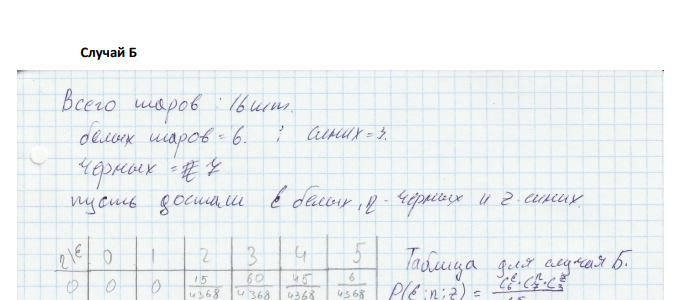 Случай Б
Всего шаров : 16 шт.
белых шаров = 6. ; синих = 3.
черных = 7
пусть достали б белых, η - черных и z синих.
η\б 0 1 2 3 4 5
0 0 0 15/4368 60/4368 45/4368 6/4368
Таблица для случая Б.
P(б; η; z) =